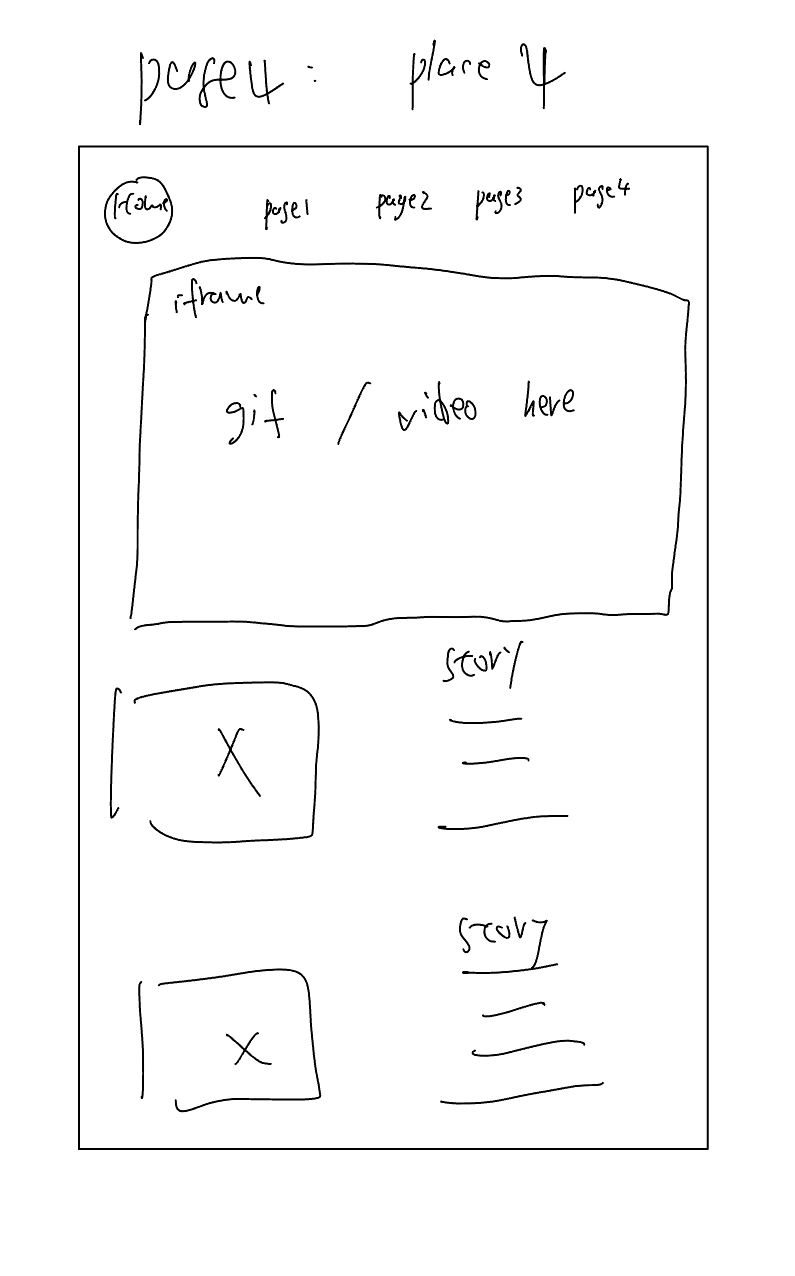 page4: place 4
Home page1 page2 page3 page4
iframe
gif / video here
story
X
story
X